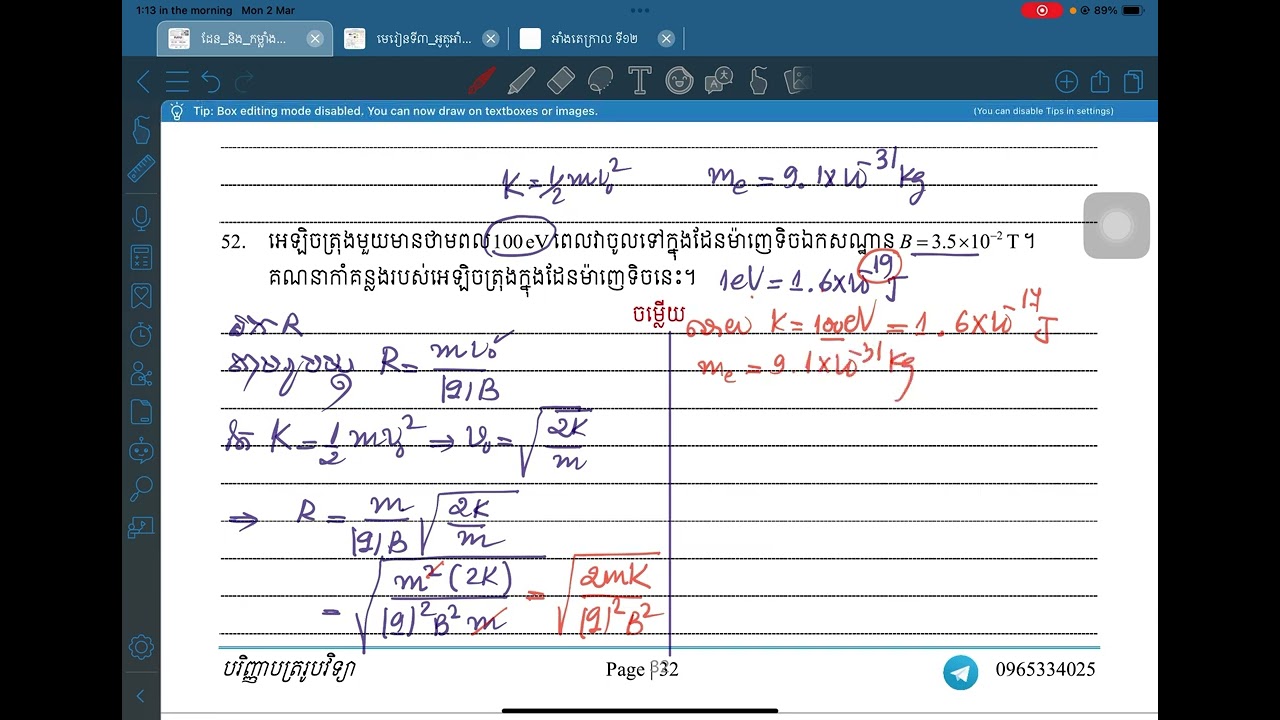 1:13 in the morning Mon 2 Mar 89%
ដែន_និង_កម្លាំង... មេរៀនទី៣_អូតូអាំ... អាំងតេក្រាល ទី១២
Tip: Box editing mode disabled, You can now draw on textboxes or images. (You can disable Tips in settings)
K = 1/2 mv₀² mₑ = 9.1×10⁻³¹ kg
52. អេឡិចត្រុងមួយមានថាមពល 100 eV ពេលវាចូលទៅក្នុងដែនម៉ាញេទិចឯកសណ្ឋាន B = 3.5×10⁻² T ។
គណនាកាំគន្លងរបស់អេឡិចត្រុងក្នុងដែនម៉ាញេទិចនេះ។ 1eV = 1.6×10⁻¹⁹ J
ចម្លើយ
រក R
តាមរូបមន្ត R = mv₀/|q|B
តែ K = 1/2 mv₀² ⇒ v₀ = √(2K/m)
⇒ R = m/|q|B √(2K/m)
= √(m²(2K)/|q|²B²m) = √(2mK/|q|²B²)
ដោយ K = 100eV = 1.6×10⁻¹⁷ J
mₑ = 9.1×10⁻³¹ kg
បរិញ្ញាបត្ររូបវិទ្យា Page | 32 0965334025